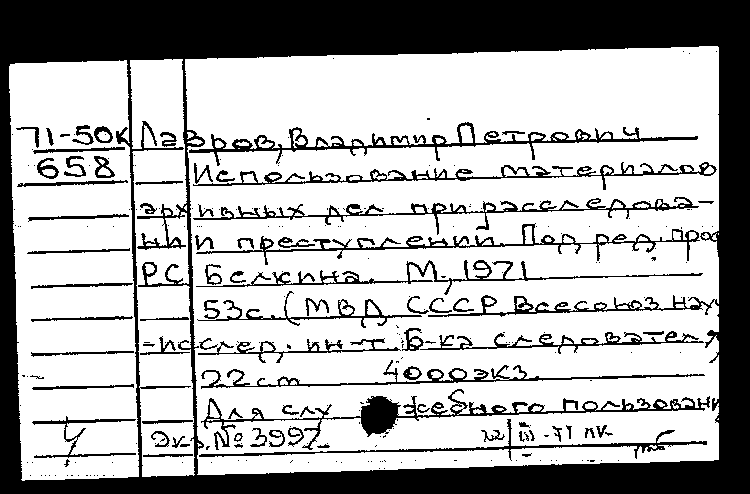 71-50к Лавров, Владимир Петрович
658 Использование материалов
архивных дел при расследова-
нии преступлений. Под ред. проф
РС Белкина. М., 1971
53с. (МВД СССР. Всесоюз науч
-исслед. ин-т. Б-ка следователя
22 cm 4000экз.
Для служебного пользовани
Экз. №3997. 22/III-71 ЛК